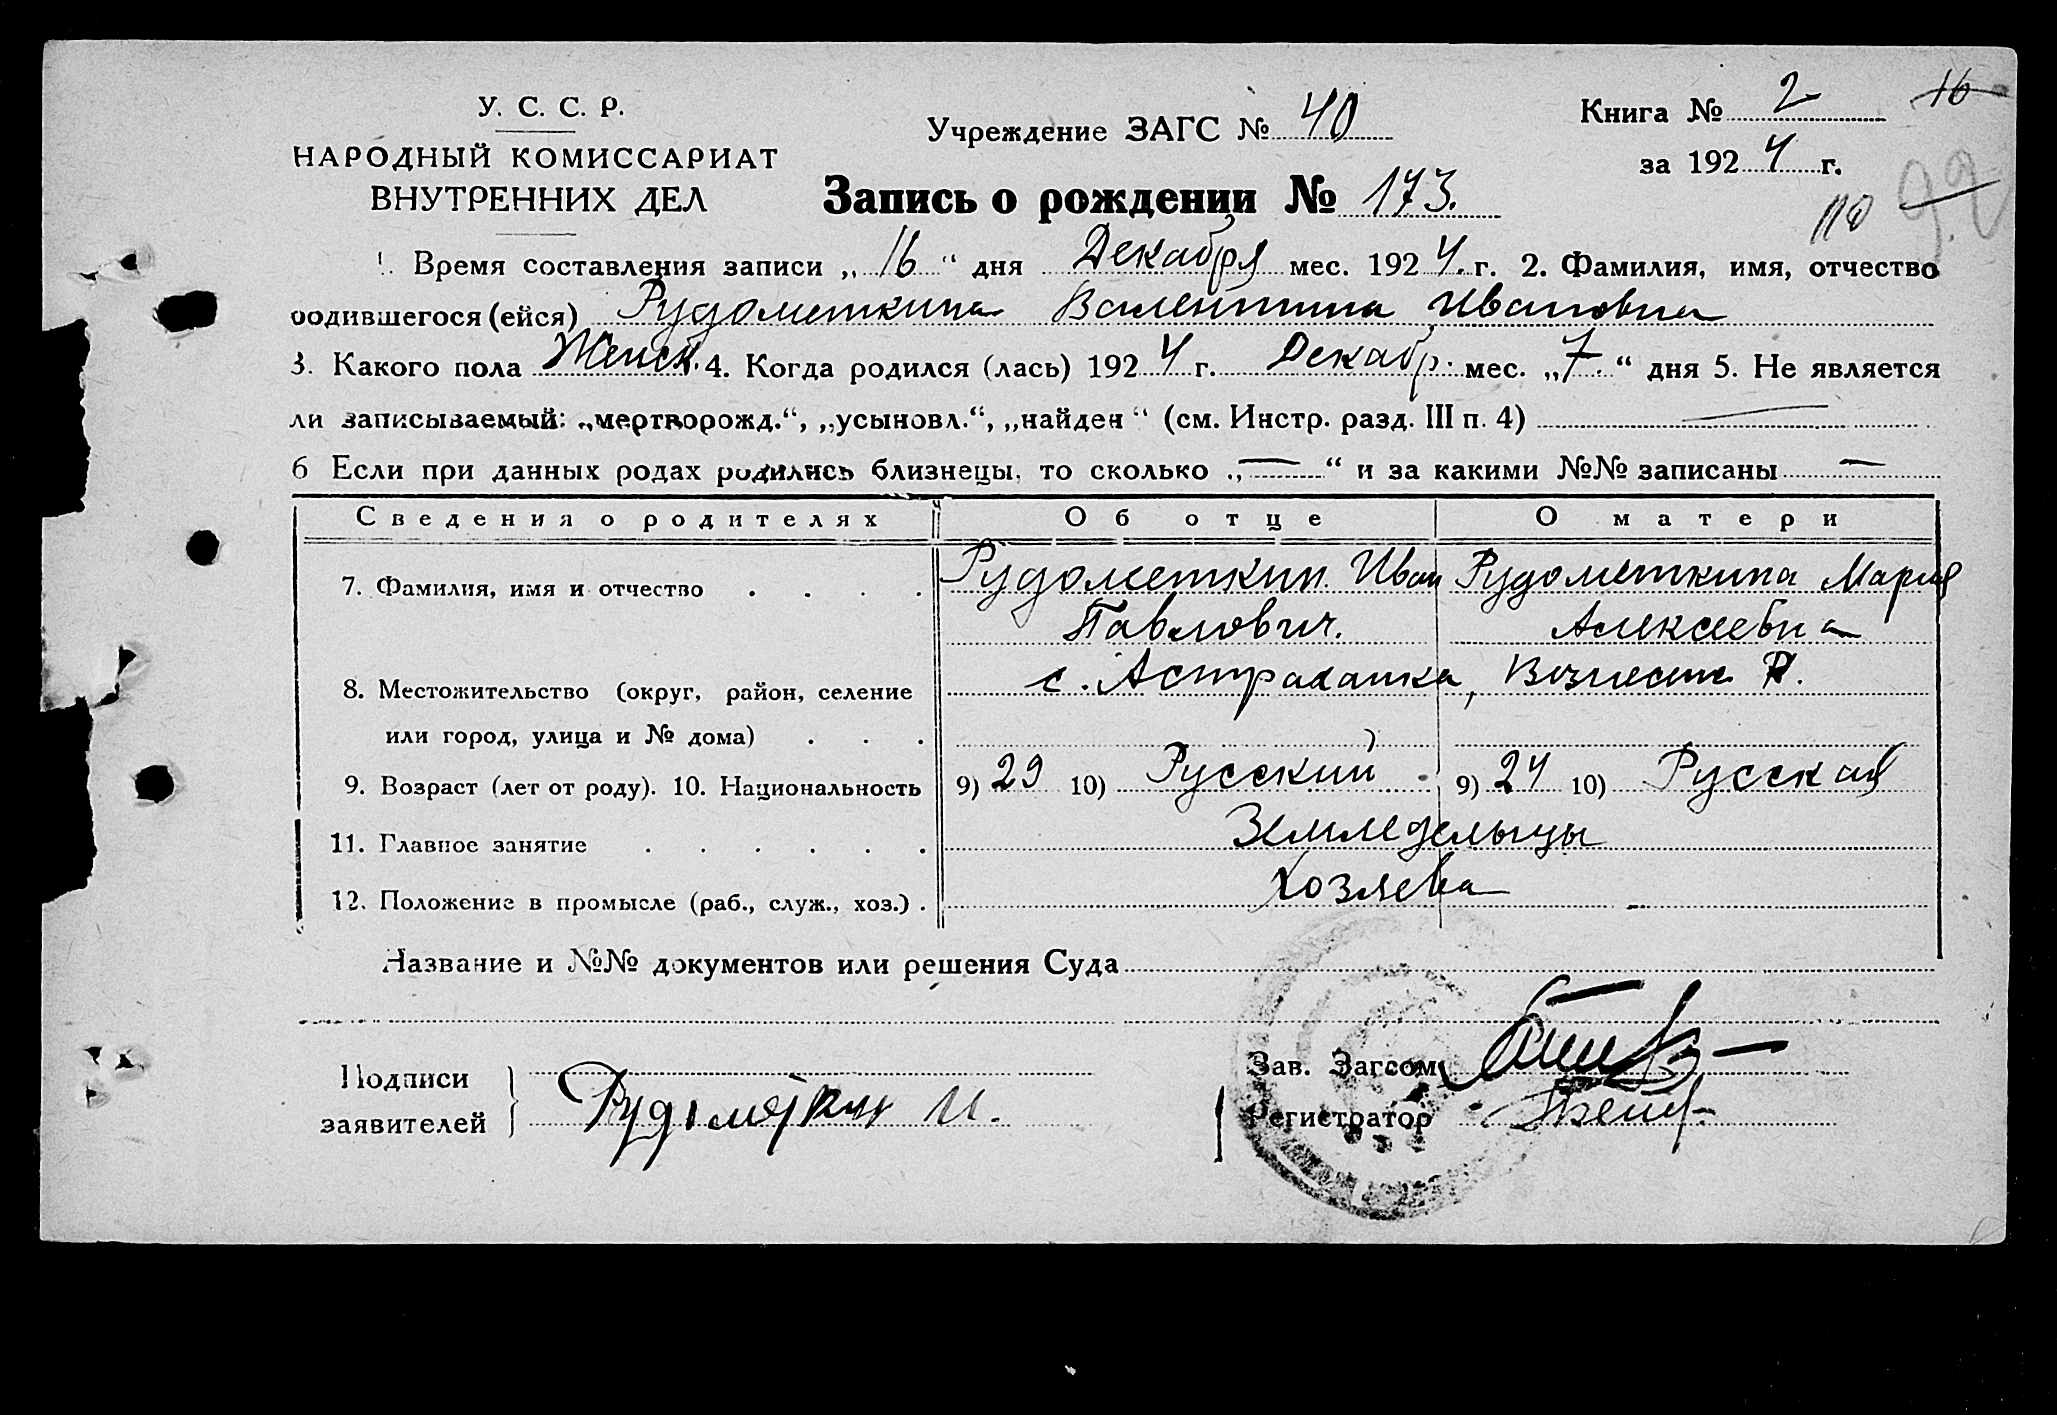 У. С. С. Р.
НАРОДНЫЙ КОМИССАРИАТ
ВНУТРЕННИХ ДЕЛ
Учреждение ЗАГС № 40
Книга № 2
16
за 1924 г.
Запись о рождении № 173.
110
92
1. Время составления записи „16“ дня Декабря мес. 1924 г. 2. Фамилия, имя, отчество
родившегося (ейся) Рудометкина Валентина Ивановна
3. Какого пола Женск. 4. Когда родился (лась) 1924 г. Декабр. мес. „7.“ дня 5. Не является
ли записываемый: „мертворожд.“, „усыновл.“, „найден“ (см. Инстр. разд. III п. 4) —
6 Если при данных родах родились близнецы, то сколько „—“ и за какими №№ записаны —
Сведения о родителях Об отце О матери
7. Фамилия, имя и отчество . . . . Рудометкин Иван Рудометкина Мария
Павлович. Алексеевна
8. Местожительство (округ, район, селение с. Астраханка, Вознесенс Р.
или город, улица и № дома) . . .
9. Возраст (лет от роду). 10. Национальность 9) 29 10) Русский 9) 24 10) Русская
11. Главное занятие . . . . . . Земледельцы
12. Положение в промысле (раб., служ., хоз.) . Хозяева
Название и №№ документов или решения Суда
Подписи
заявителей
Рудомёткин И.
Зав. Загсом
Регистратор